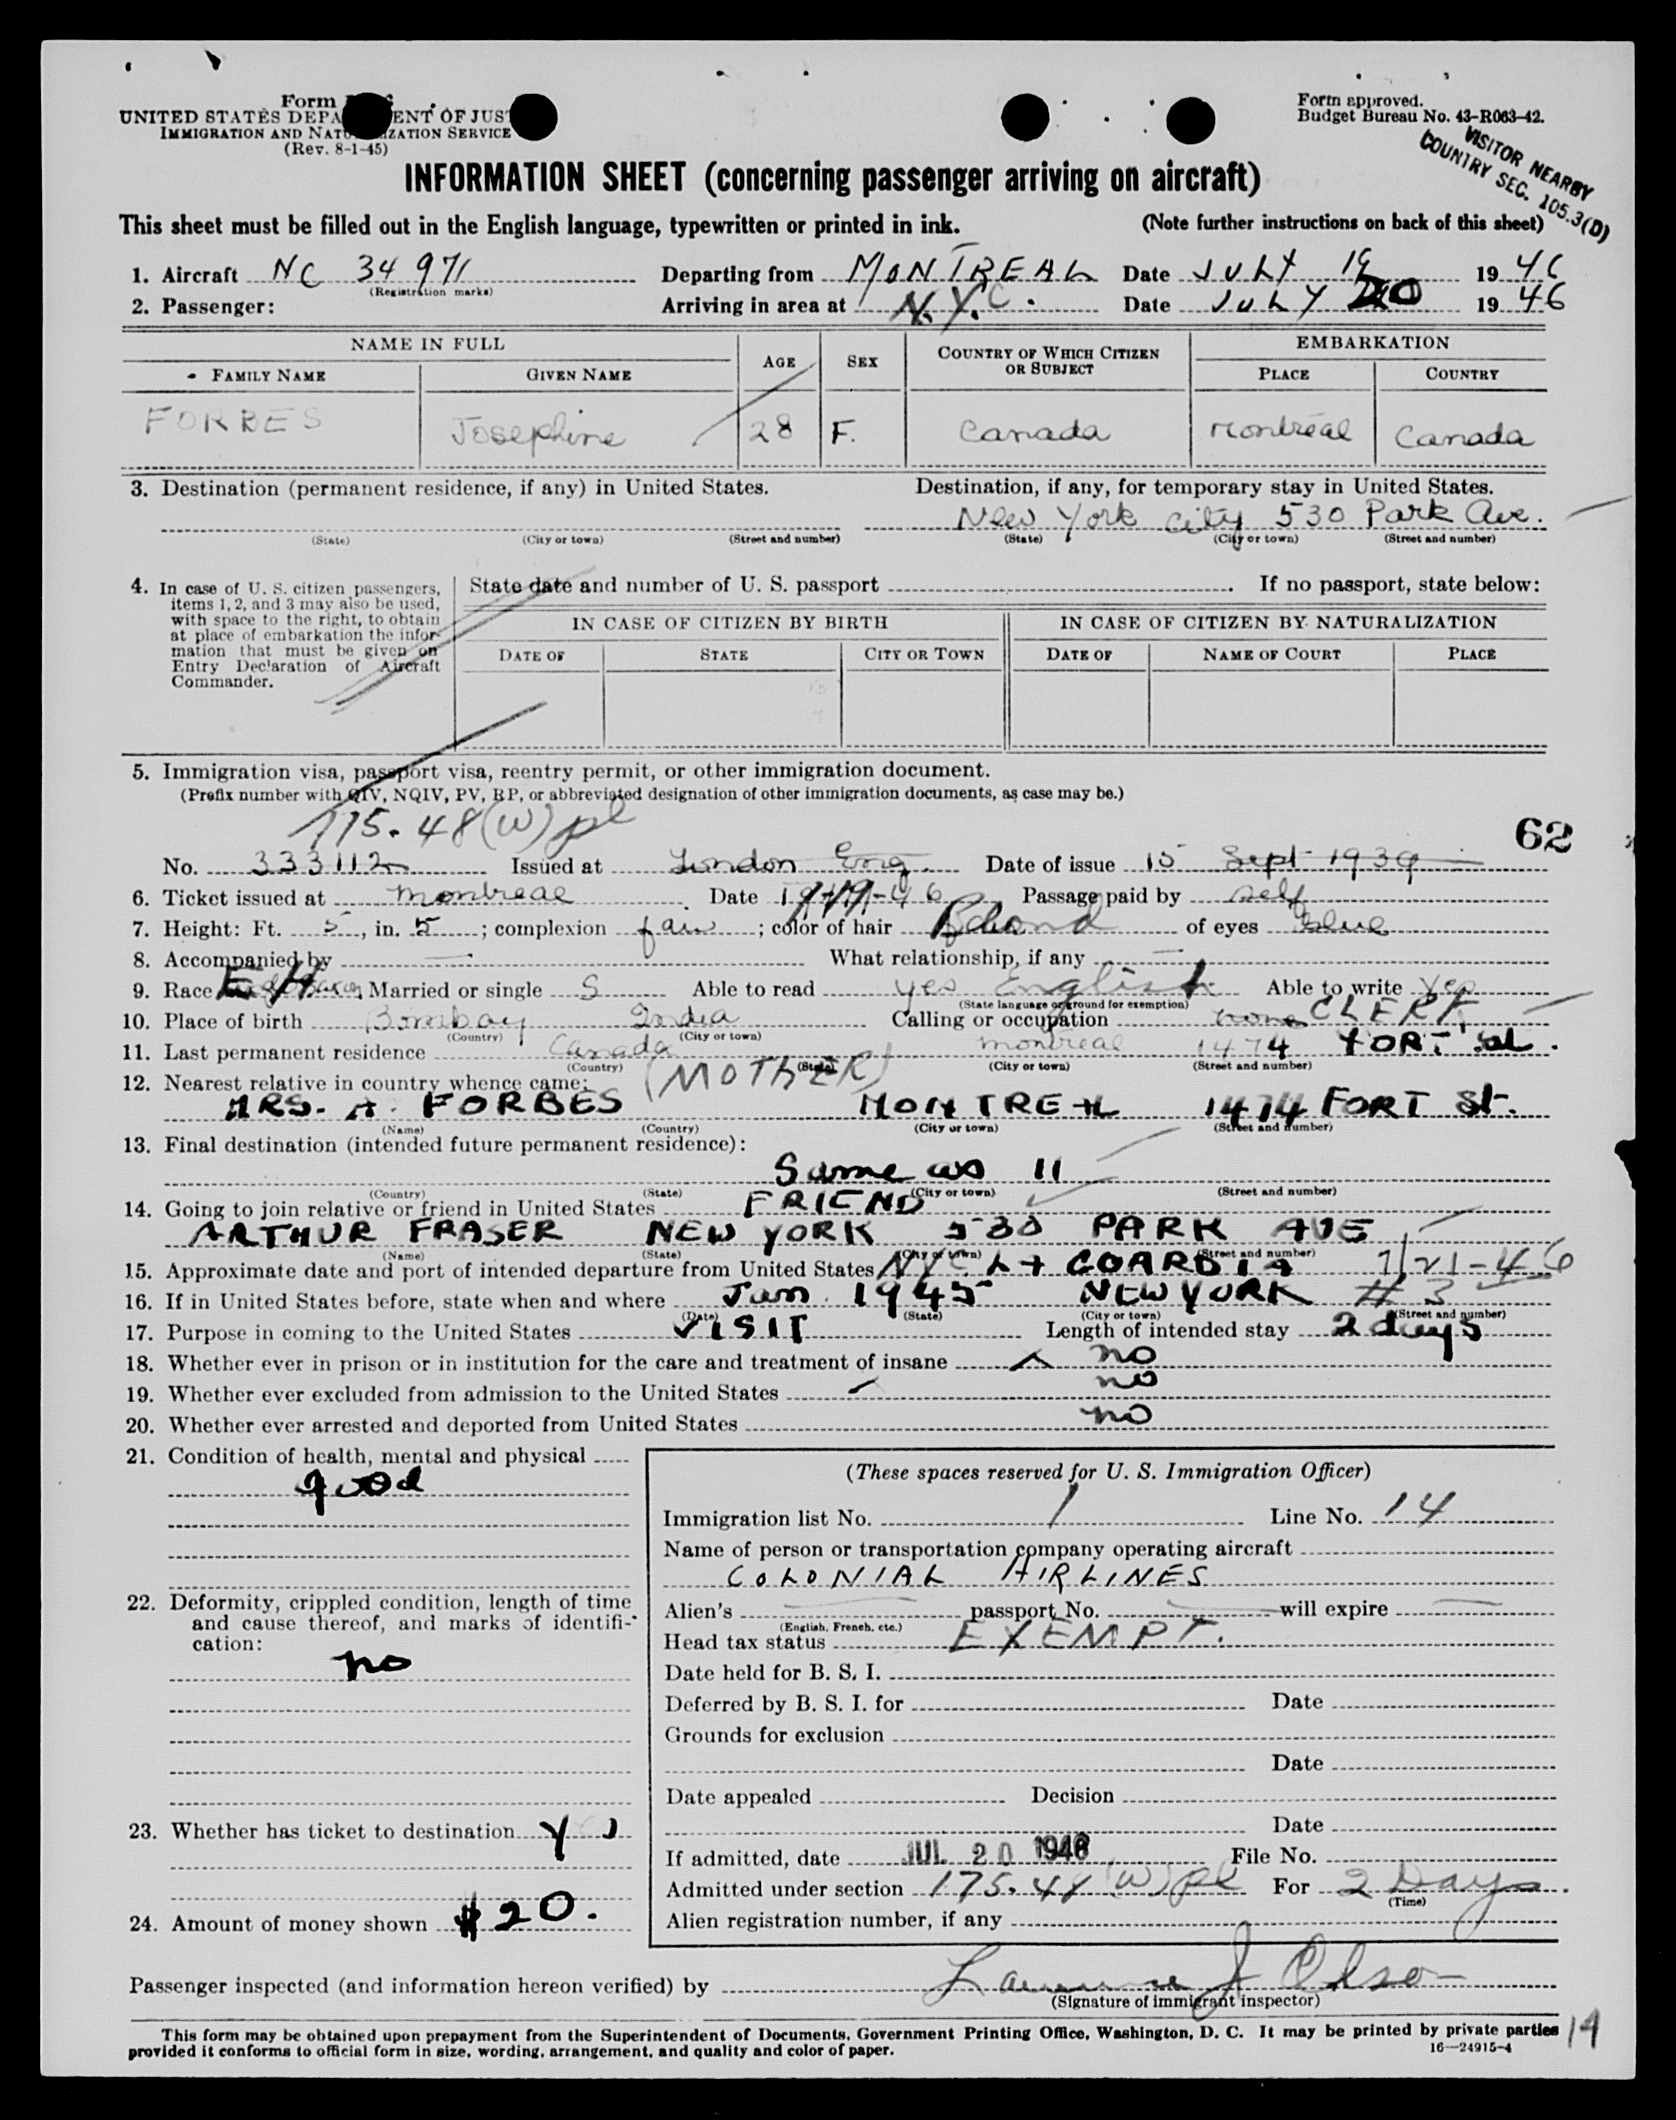 Form
Form approved.
UNITED STATES DEPA ENT OF JUS
Budget Bureau No. 43-R063-42.
IMMIGRATION AND NATU IZATION SERVICE
(Rev. 8-1-45)
VISITOR NEARBY
COUNTRY SEC. 105.3(D)
INFORMATION SHEET (concerning passenger arriving on aircraft)
This sheet must be filled out in the English language, typewritten or printed in ink. (Note further instructions on back of this sheet)
1. Aircraft NC 34971 Departing from MONTREAL Date JULY 19 1946
(Registration marks)
2. Passenger: Arriving in area at N.Y.C. Date JULY 20 1946
NAME IN FULL AGE SEX COUNTRY OF WHICH CITIZEN OR SUBJECT EMBARKATION
FAMILY NAME GIVEN NAME PLACE COUNTRY
FORBES Josephine 28 F. Canada Montreal Canada
3. Destination (permanent residence, if any) in United States. Destination, if any, for temporary stay in United States.
New York City 530 Park Ave.
(State) (City or town) (Street and number) (State) (City or town) (Street and number)
4. In case of U. S. citizen passengers, items 1, 2, and 3 may also be used, with space to the right, to obtain at place of embarkation the information that must be given on Entry Declaration of Aircraft Commander.
State date and number of U. S. passport . If no passport, state below:
IN CASE OF CITIZEN BY BIRTH IN CASE OF CITIZEN BY NATURALIZATION
DATE OF STATE CITY OR TOWN DATE OF NAME OF COURT PLACE
5. Immigration visa, passport visa, reentry permit, or other immigration document.
(Prefix number with QIV, NQIV, PV, RP, or abbreviated designation of other immigration documents, as case may be.)
175.48(W) pl
62
No. 333112 Issued at London Eng. Date of issue 15 Sept 1939
6. Ticket issued at Montreal Date 7-19-46 Passage paid by self
7. Height: Ft. 5, in. 5; complexion fair; color of hair Blond of eyes Blue
8. Accompanied by What relationship, if any
9. Race Married or single S Able to read yes English Able to write Yes
(State language or ground for exemption)
10. Place of birth Bombay India Calling or occupation none CLERK
(Country) (City or town)
11. Last permanent residence Canada Montreal 1474 FORT St.
(Country) (State) (City or town) (Street and number)
12. Nearest relative in country whence came: (MOTHER)
MRS. A. FORBES MONTREAL 1474 FORT St.
(Name) (Country) (City or town) (Street and number)
13. Final destination (intended future permanent residence):
Same as 11
(Country) (State) (City or town) (Street and number)
14. Going to join relative or friend in United States FRIEND
ARTHUR FRASER NEW YORK 530 PARK AVE
(Name) (State) (City or town) (Street and number)
15. Approximate date and port of intended departure from United States NYC LA GUARDIA 7/21-46
16. If in United States before, state when and where Jan. 1945 NEW YORK # 3
(Date) (State) (City or town) (Street and number)
17. Purpose in coming to the United States VISIT Length of intended stay 2 days
18. Whether ever in prison or in institution for the care and treatment of insane no
19. Whether ever excluded from admission to the United States no
20. Whether ever arrested and deported from United States no
21. Condition of health, mental and physical
good
22. Deformity, crippled condition, length of time and cause thereof, and marks of identification:
no
23. Whether has ticket to destination
24. Amount of money shown $20.
(These spaces reserved for U. S. Immigration Officer)
Immigration list No. 1 Line No. 14
Name of person or transportation company operating aircraft
COLONIAL AIRLINES
Alien's passport No. will expire
(English, French, etc.)
Head tax status EXEMPT.
Date held for B. S. I.
Deferred by B. S. I. for Date
Grounds for exclusion
Date
Date appealed Decision
Date
If admitted, date JUL 20 1946 File No.
Admitted under section 175.48 (W) pl For 2 Days
(Time)
Alien registration number, if any
Passenger inspected (and information hereon verified) by Lawrence J Olson
(Signature of immigrant inspector)
This form may be obtained upon prepayment from the Superintendent of Documents, Government Printing Office, Washington, D. C. It may be printed by private parties
provided it conforms to official form in size, wording, arrangement, and quality and color of paper.
16—24915-4
14